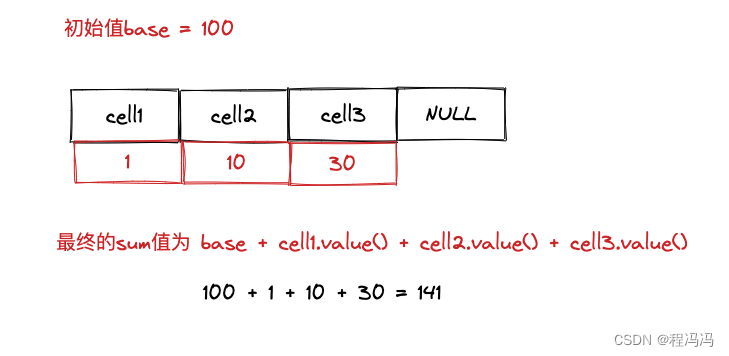 初始值base = 100
cell1 cell2 cell3 NULL
1 10 30
最终的sum值为 base + cell1.value() + cell2.value() + cell3.value()
100 + 1 + 10 + 30 = 141
CSDN @程冯冯